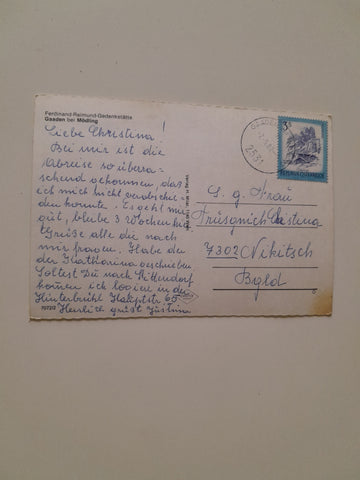 Ferdinand-Raimund-Gedenkstätte
Gaaden bei Mödling
Liebe Christina!
Bei mir ist die
Abreise so überra-
schend gekommen, das
ich mich nicht verabschie-
den konnte. Es geht mir
gut, bleibe 3 Wochen hier
Grüße alle die nach
mir fragen. Habe
der Katharina geschrieben
Solltest Du nach
kommen ich logiere in der
Hinterbrühl Hauptst 60
Herzlich grüst Justina
7072/2
S. g. Frau
7302 Nikitsch
Bgld
2531
3
REPUBLIK ÖSTERREICH